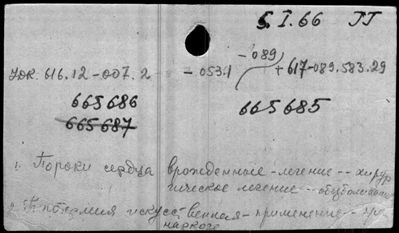 5.I.66 IT
-089
УДК: 616.12-007.2 -053.1 +617-089.583.29
665686 665685
665687
1. Пороки сердца врожденные - лечение -- хирур
гическое лечение -- обезболивание
2. Гипотермия искусственная - применение -- при
наркозе